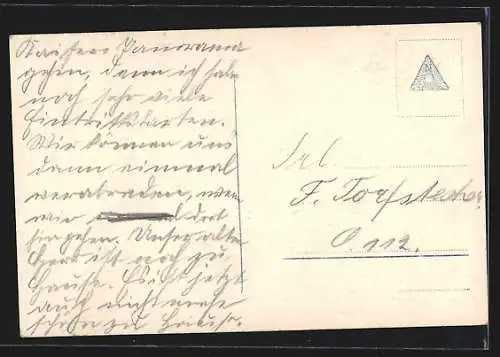 Kaisers Panorama
gehen, denn ich habe
noch sehr viele
Eintrittskarten.
Wir können uns
dann einmal
verabreden, wenn
wir dort
hingehen. Unser alter
ist noch zu
Hause. Es ist jetzt
auch nicht mehr
schön zu
Frl.
F. Torfstecher
O. 112.